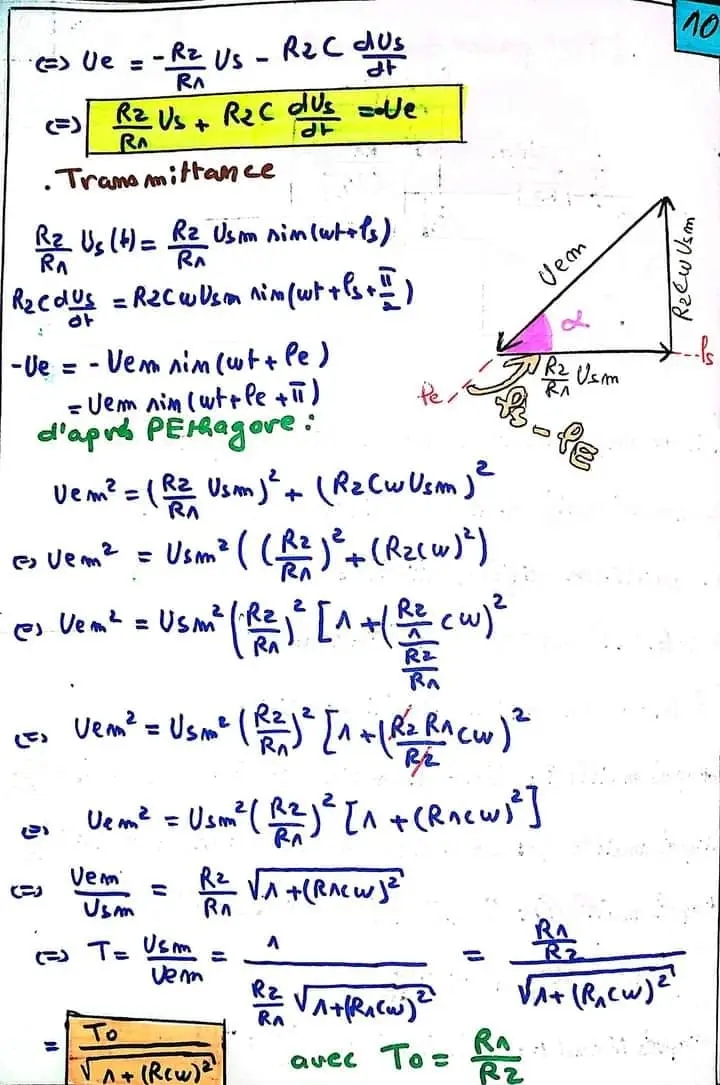 10
<=> Ue = -R2/R1 Us - R2C dUs/dt
<=> R2/R1 Us + R2C dUs/dt = -Ue
. Transmittance
R2/R1 Us(t) = R2/R1 Usm sin(wt+φs)
R2C dUs/dt = R2CwUsm sin(wt+φs+π/2)
-Ue = -Uem sin(wt+φe)
= Uem sin(wt+φe+π)
Uem
R2CwUsm
α
R2/R1 Usm
φs
φe
φs - φE
d'aprés PEthagore :
Uem² = (R2/R1 Usm)² + (R2CwUsm)²
<=> Uem² = Usm² ((R2/R1)² + (R2Cw)²)
<=> Uem² = Usm² (R2/R1)² [1 + (R2/1/R2/R1 Cw)²
<=> Uem² = Usm² (R2/R1)² [1 + (R2 R1/R2 Cw)²
<=> Uem² = Usm² (R2/R1)² [1 + (R1Cw)²]
<=> Uem/Usm = R2/R1 √1+(R1Cw)²
<=> T = Usm/Uem = 1/R2/R1 √1+(R1Cw)² = R1/R2/√1+(R1Cw)²
= To/√1+(RCw)² avec To = R1/R2